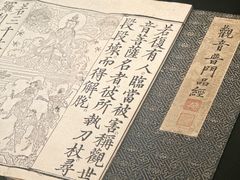 觀音普門品經
若復有人臨當被害稱觀世
音菩薩名者彼所執刀杖尋
段段壞而得解脫
若三千